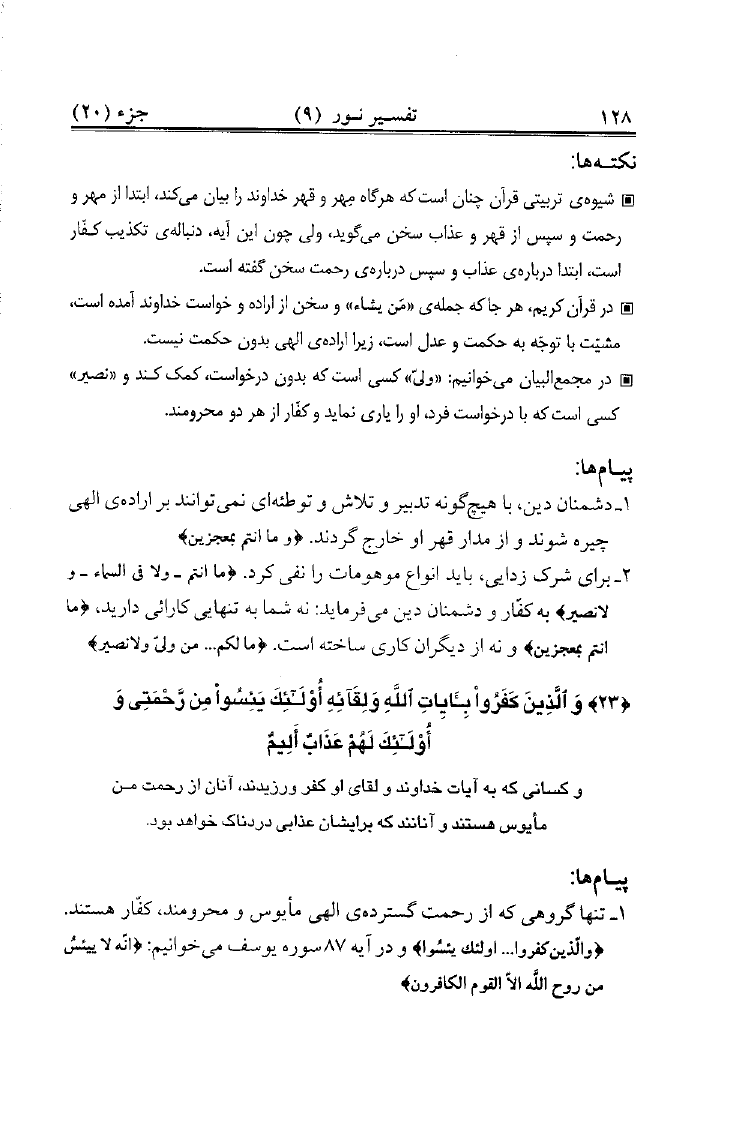 ۱۲۸ تفسیر نـور (۹) جزء (۲۰)
نکتـه‌ها:
▣ شیوه‌ی تربیتی قرآن چنان است که هرگاه مِهر و قهر خداوند را بیان می‌کند، ابتدا از مِهر و
رحمت و سپس از قهر و عذاب سخن می‌گوید، ولی چون این آیه، دنباله‌ی تکذیب کـفّار
است، ابتدا درباره‌ی عذاب و سپس درباره‌ی رحمت سخن گفته است.
▣ در قرآن کریم، هر جا که جمله‌ی «مَن یشاء» و سخن از اراده و خواست خداوند آمده است،
مشیّت با توجّه به حکمت و عدل است، زیرا اراده‌ی الهی بدون حکمت نیست.
▣ در مجمع‌البیان می‌خوانیم: «ولیّ» کسی است که بدون درخواست، کمک کـند و «نصیر»
کسی است که با درخواست فرد، او را یاری نماید و کفّار از هر دو محرومند.
پیـام‌ها:
۱ـ دشمنان دین، با هیچ‌گونه تدبیر و تلاش و توطئه‌ای نمی‌توانند بر اراده‌ی الهی
چیره شوند و از مدار قهر او خارج گردند. ﴿و ما انتم بمعجزین﴾
۲ـ برای شرک زدایی، باید انواع موهومات را نفی کرد. ﴿ما انتم ـ ولا فی السماء ـ و
لانصیر﴾ به کفّار و دشمنان دین می‌فرماید: نه شما به تنهایی کارائی دارید، ﴿ما
انتم بمعجزین﴾ و نه از دیگران کاری ساخته است. ﴿ما لکم... من ولیّ ولانصیر﴾
﴿۲۳﴾ وَ ٱلَّذِینَ کَفَرُواْ بِـَٔایَاتِ ٱللَّهِ وَلِقَآئِهِ أُوْلَـٰٓئِکَ یَئِسُواْ مِن رَّحْمَتِی وَ
أُوْلَـٰٓئِکَ لَهُمْ عَذَابٌ أَلِیمٌ
و کسانی که به آیات خداوند و لقای او کفر ورزیدند، آنان از رحمت مـن
مأیوس هستند و آنانند که برایشان عذابی دردناک خواهد بود.
پیـام‌ها:
۱ـ تنها گروهی که از رحمت گسترده‌ی الهی مأیوس و محرومند، کفّار هستند.
﴿والّذین کفروا... اولئك یئسُوا﴾ و در آیه ۸۷ سوره یوسف می‌خوانیم: ﴿انّه لا ییئسُ
من روح اللَّه الاّ القوم الکافرون﴾